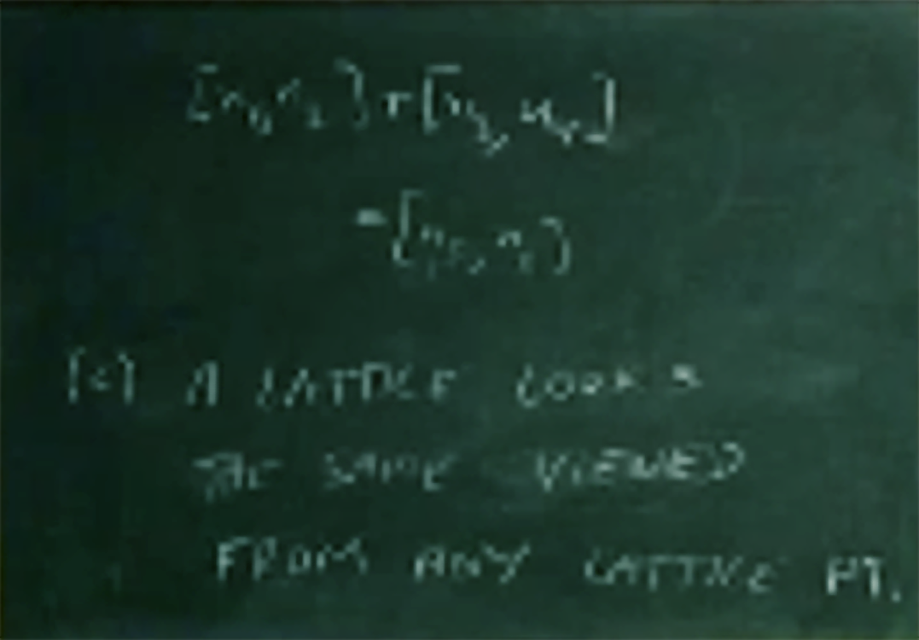 [n₁, n₂] + [n₃, n₄]
(c) A LATTICE LOOKS
THE SAME VIEWED
FROM ANY LATTICE PT.